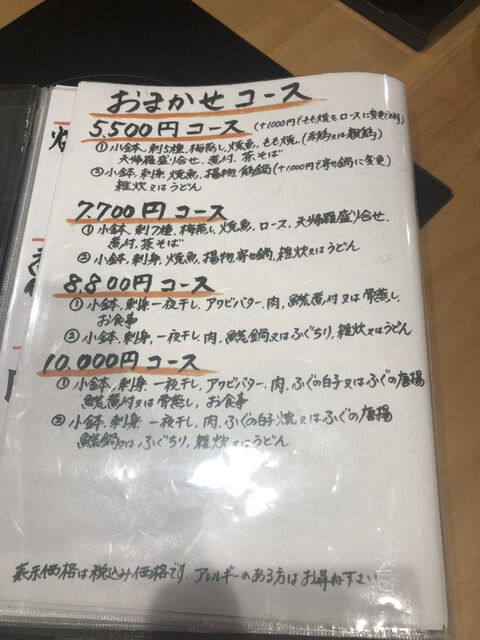 おまかせコース
5,500円コース (+1000円でもも焼をロースに変更でき〼)
① 小鉢、刺5種、梅蒸し、焼魚、もも焼。(赤鶏又は親鶏)
天婦羅盛り合せ、煮付、茶そば
② 小鉢、刺身、焼魚、揚物、鶏鍋(+1000円で寄せ鍋に変更)
雑炊又はうどん
7.700円コース
① 小鉢、刺7種、梅蒸し、焼魚、ロース、天婦羅盛り合せ、
煮付、茶そば
② 小鉢、刺身、焼魚、揚物、寄せ鍋、雑炊又はうどん
8.800円コース
① 小鉢、刺身、一夜干し、アワビバター、肉、鯱煮付又は骨蒸し、
お食事
② 小鉢、刺身、一夜干し、肉、鍋又はふぐちり、雑炊又はうどん
10.000円コース
① 小鉢、刺身、一夜干し、アワビバター、肉、ふぐの白子又はふぐの唐揚
煮付又は骨蒸し、お食事
② 小鉢、刺身、一夜干し、肉、ふぐの白子焼又はふぐの唐揚
鍋又はふぐちり、雑炊又はうどん
表示価格は税込み価格です。アレルギーのある方はお尋ね下さい